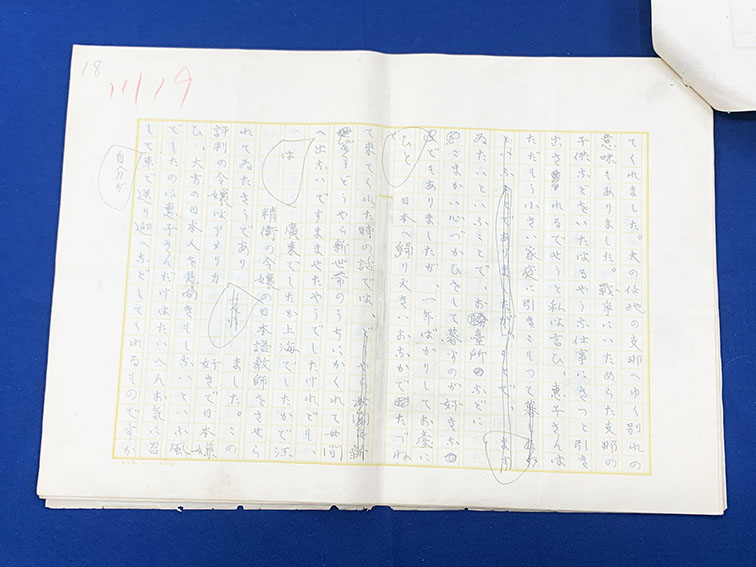 18
1119
てくれました。夫の任地の支那へゆく別れの
意味もありました。戦争にいためられた支那の
子供などをいたはるやうな仕事にきつと引き
出されるでせうと私は言ひ、恵子さんは
ただもう小さい家庭に引きこもつて暮し
ゐたいといふことで、お勝手所などに
こまかい心づかひをして暮すのが好きな
ひと
でもありましたが、一年ばかりしてお産に
日本へ帰り大きいおなかでたづね
て来てくれた時の話では、
どうやら新世帯のうちにかくれて世間
へ出ないですませたやうでしたけれども、
は
廣東でしたか上海でしたかで汪
精衛の令嬢の日本語教師をさせら
れてゐたさうであり
ました。この
評判の令嬢はアメリカ
好きで日本嫌
ひ、大方の日本人を見向きもしないといふ風
でしたのに恵子さんだけはたいへんお気に召
して車で送り迎へなどしてくれるものですか
自分が